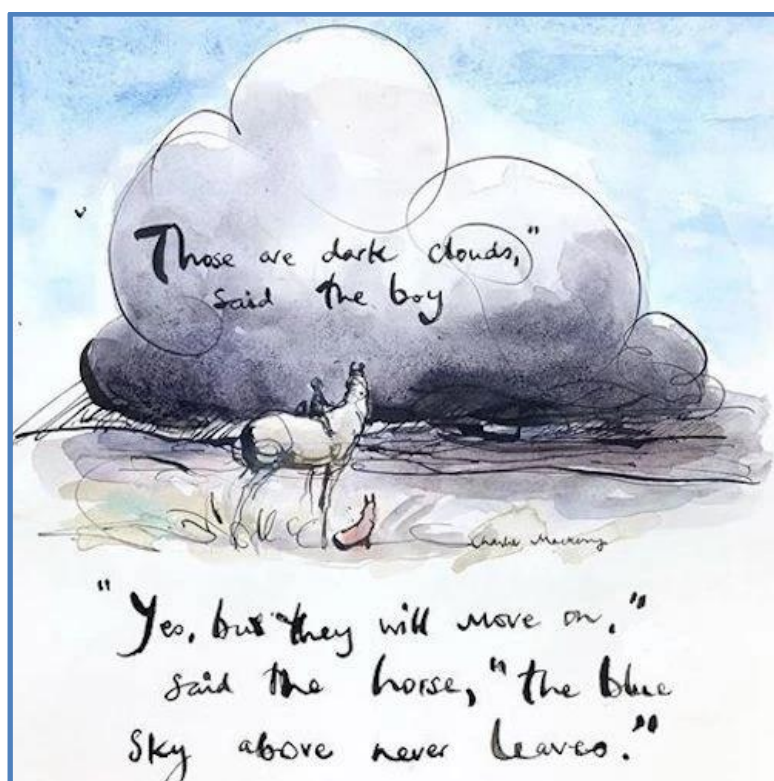 Those are dark clouds,"
said the boy
Charlie Mackesy
"Yes, but they will move on,"
said the horse, "the blue
sky above never leaves."